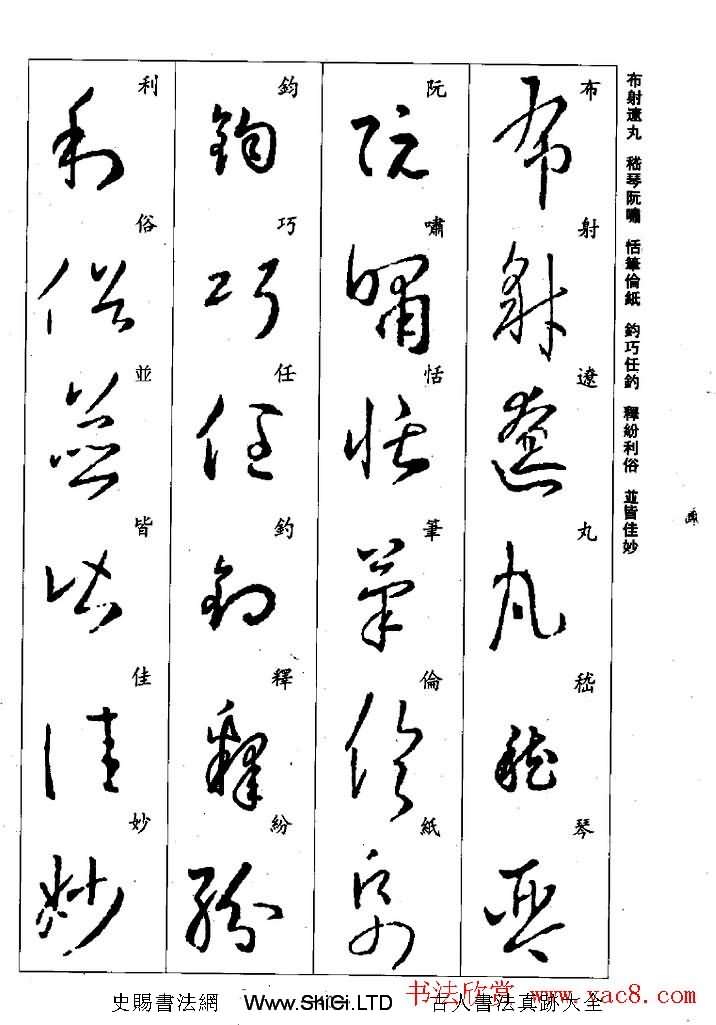 布射遼丸 嵇琴阮嘯 恬筆倫紙 鈞巧任釣 釋紛利俗 並皆佳妙
布射遼丸嵇琴
阮嘯恬筆倫紙
鈞巧任釣釋紛
利俗並皆佳妙
史賜書法網 Www.ShiCi.LTD 古人書法真跡大全
书法欣赏 www.xac8.com